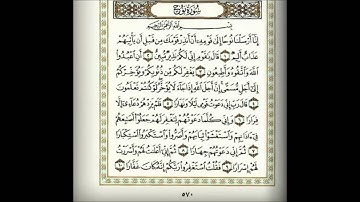 سُورَةُ نُوحٍ
بِسْمِ اللَّهِ الرَّحْمَٰنِ الرَّحِيمِ
إِنَّا أَرْسَلْنَا نُوحًا إِلَىٰ قَوْمِهِ أَنْ أَنذِرْ قَوْمَكَ مِن قَبْلِ أَن يَأْتِيَهُمْ
عَذَابٌ أَلِيمٌ ١ قَالَ يَٰقَوْمِ إِنِّي لَكُمْ نَذِيرٌ مُّبِينٌ ٢ أَنِ اعْبُدُوا
اللَّهَ وَاتَّقُوهُ وَأَطِيعُونِ ٣ يَغْفِرْ لَكُم مِّن ذُنُوبِكُمْ وَيُؤَخِّرْكُمْ
إِلَىٰ أَجَلٍ مُّسَمًّى إِنَّ أَجَلَ اللَّهِ إِذَا جَاءَ لَا يُؤَخَّرُ لَوْ كُنتُمْ تَعْلَمُونَ
٤ قَالَ رَبِّ إِنِّي دَعَوْتُ قَوْمِي لَيْلًا وَنَهَارًا ٥ فَلَمْ يَزِدْهُمْ دُعَاءِي إِلَّا
فِرَارًا ٦ وَإِنِّي كُلَّمَا دَعَوْتُهُمْ لِتَغْفِرَ لَهُمْ جَعَلُوا أَصَٰبِعَهُمْ
فِي ءَاذَانِهِمْ وَاسْتَغْشَوْا ثِيَابَهُمْ وَأَصَرُّوا وَاسْتَكْبَرُوا اسْتِكْبَارًا
٧ ثُمَّ إِنِّي دَعَوْتُهُمْ جِهَارًا ٨ ثُمَّ إِنِّي أَعْلَنتُ لَهُمْ وَأَسْرَرْتُ
لَهُمْ إِسْرَارًا ٩ فَقُلْتُ اسْتَغْفِرُوا رَبَّكُمْ إِنَّهُ كَانَ غَفَّارًا ١٠
٥٧٠